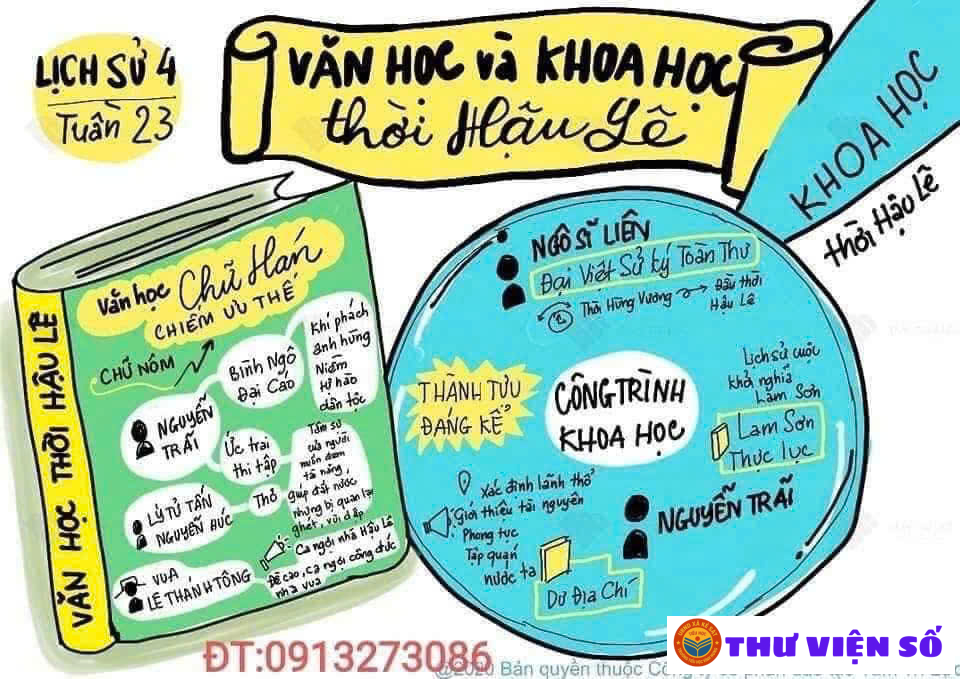 LỊCH SỬ 4
Tuần 23
VĂN HỌC và KHOA HỌC
thời Hậu Lê
KHOA HỌC
thời Hậu Lê
VĂN HỌC THỜI HẬU LÊ
Văn học Chữ Hán
CHIẾM ƯU THẾ
CHỮ NÔM
NGUYỄN
TRÃI
Bình Ngô
Đại Cáo
Khí phách
anh hùng
Niềm
tự hào
dân tộc
Ức trai
thi tập
Tâm sự
của người
muốn đem
tài năng
giúp đất nước
nhưng bị quan lại
ghét, vùi dập
LÝ TỬ TẤN
NGUYỄN HÚC
Thơ
VUA
LÊ THÁNH TÔNG
Ca ngợi nhà Hậu Lê
Đề cao, ca ngợi công đức
nhà vua
NGÔ SĨ LIÊN
Đại Việt Sử ký Toàn Thư
Thời Hùng Vương
Đầu thời
Hậu Lê
THÀNH TỰU
ĐÁNG KỂ
CÔNG TRÌNH
KHOA HỌC
Lịch sử cuộc
khởi nghĩa
Lam Sơn
Lam Sơn
Thực lục
NGUYỄN TRÃI
Xác định lãnh thổ
Giới thiệu tài nguyên
Phong tục
Tập quán
nước ta
Dư Địa Chí
ĐT:0913273086
@2020 Bản quyền thuộc
THƯ VIỆN SỐ